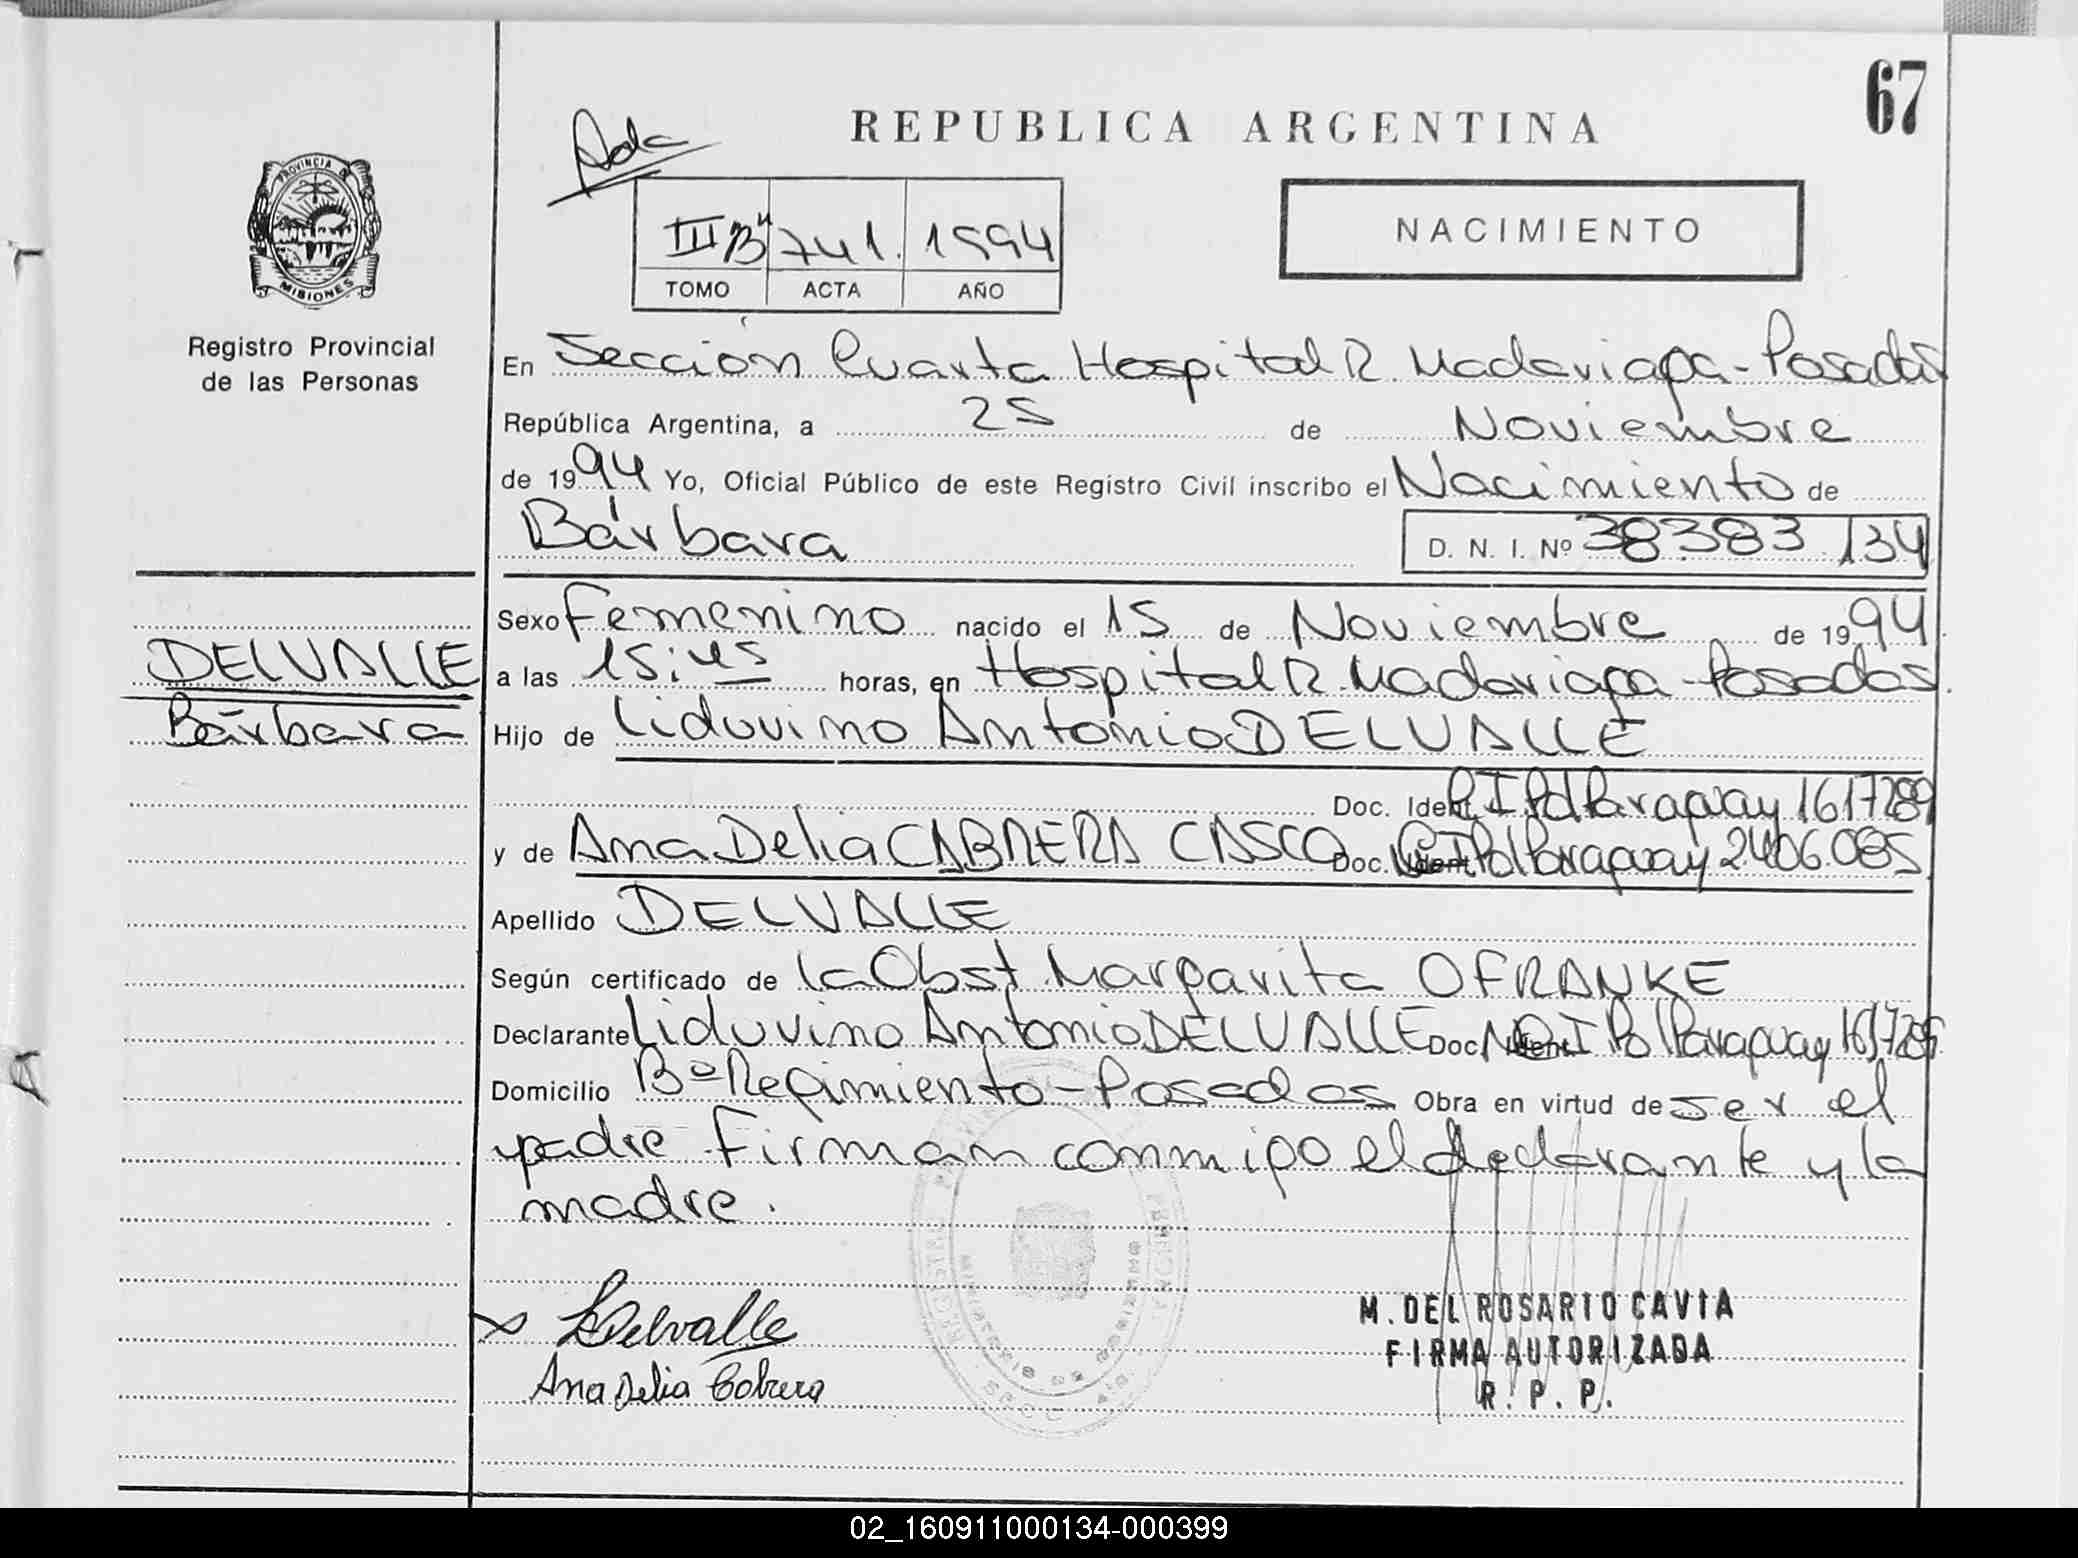 67
REPUBLICA ARGENTINA
PROVINCIA DE
MISIONES
III B" 741. 1994
TOMO ACTA AÑO
NACIMIENTO
Registro Provincial
de las Personas
En Sección Cuarta Hospital R. Madariaga - Posadas
República Argentina, a 25 de Noviembre
de 1994 Yo, Oficial Público de este Registro Civil inscribo el Nacimiento de
Bárbara D. N. I. Nº 38383134
Sexo Femenino nacido el 15 de Noviembre de 1994
DELVALLE
a las 15:45 horas, en Hospital R. Madariaga - Posadas.
Bárbara
Hijo de Liduvino Antonio DELVALLE
Doc. Ident. C I Pol Paraguay 1617289
y de Ana Delia CABRERA CASCO Doc. Ident. C I Pol Paraguay 2406.085
Apellido DELVALLE
Según certificado de la Obst. Margarita O FRANKE
Declarante Liduvino Antonio DELVALLE Doc. Ident. C I Pol Paraguay 1617289
Domicilio Bº Regimiento - Posadas Obra en virtud de ser el
padre. Firman conmigo el declarante y la
madre.
LDelvalle
Ana Delia Cabrera
M. DEL ROSARIO CAVIA
FIRMA AUTORIZADA
R. P. P.
02_160911000134-000399